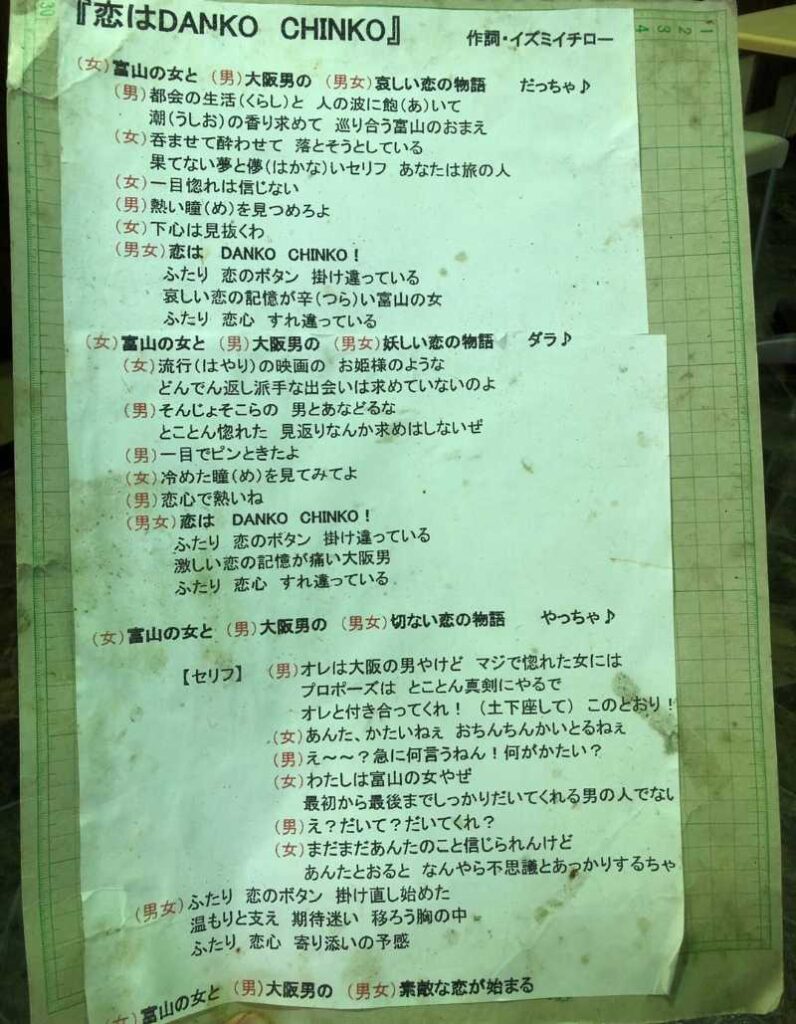 『恋はDANKO CHINKO』
作詞・イズミイチロー
(女)富山の女と (男)大阪男の (男女)哀しい恋の物語 だっちゃ♪
(男)都会の生活(くらし)と 人の波に飽(あ)いて
潮(うしお)の香り求めて 巡り合う富山のおまえ
(女)呑ませて酔わせて 落とそうとしている
果てない夢と儚(はかな)いセリフ あなたは旅の人
(女)一目惚れは信じない
(男)熱い瞳(め)を見つめろよ
(女)下心は見抜くわ
(男女)恋は DANKO CHINKO！
ふたり 恋のボタン 掛け違っている
哀しい恋の記憶が辛(つら)い富山の女
ふたり 恋心 すれ違っている
(女)富山の女と (男)大阪男の (男女)妖しい恋の物語 ダラ♪
(女)流行(はやり)の映画の お姫様のような
どんでん返し派手な出会いは求めていないのよ
(男)そんじょそこらの 男とあなどるな
とことん惚れた 見返りなんか求めはしないぜ
(男)一目でピンときたよ
(女)冷めた瞳(め)を見てみてよ
(男)恋心で熱いね
(男女)恋は DANKO CHINKO！
ふたり 恋のボタン 掛け違っている
激しい恋の記憶が痛い大阪男
ふたり 恋心 すれ違っている
(女)富山の女と (男)大阪男の (男女)切ない恋の物語 やっちゃ♪
【セリフ】 (男)オレは大阪の男やけど マジで惚れた女には
プロポーズは とことん真剣にやるで
オレと付き合ってくれ！ (土下座して) このとおり！
(女)あんた、かたいねぇ おちんちんかいとるねぇ
(男)え～～？急に何言うねん！何がかたい？
(女)わたしは富山の女やぜ
最初から最後までしっかりだいてくれる男の人でない
(男)え？だいて？だいてくれ？
(女)まだまだあんたのこと信じられんけど
あんたとおると なんやら不思議とあっかりするちゃ
(男女)ふたり 恋のボタン 掛け直し始めた
温もりと支え 期待迷い 移ろう胸の中
ふたり 恋心 寄り添いの予感
(女)富山の女と (男)大阪男の (男女)素敵な恋が始まる
30
1
2
3
4